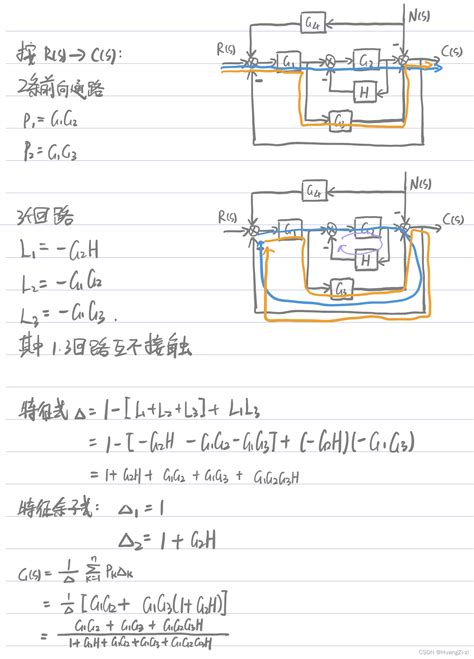 按 R(s)→C(s):
2条前向通路
P₁=G₁G₂
P₂=G₁G₃
G₄
N(s)
R(s)
G₁
G₂
C(s)
H
G₃
3个回路
L₁=-G₂H
L₂=-G₁G₂
L₃=-G₁G₃.
其中1.3回路互不接触
G₄
N(s)
R(s)
G₁
G₂
C(s)
H
G₃
特征式 Δ=1-[L₁+L₂+L₃]+L₁L₃
=1-[-G₂H -G₁G₂-G₁G₃]+(-G₂H)(-G₁G₃)
=1+G₂H+G₁G₂+G₁G₃+G₁G₂G₃H
特征余子式: Δ₁=1
Δ₂=1+G₂H
G(s)=1/Δ Σ(k=1→n) PₖΔₖ
=1/Δ [G₁G₂+G₁G₃(1+G₂H)]
=(G₁G₂+G₁G₃+G₁G₂G₃H)/(1+G₂H+G₁G₂+G₁G₃+G₁G₂G₃H)
CSDN @HuangZizi